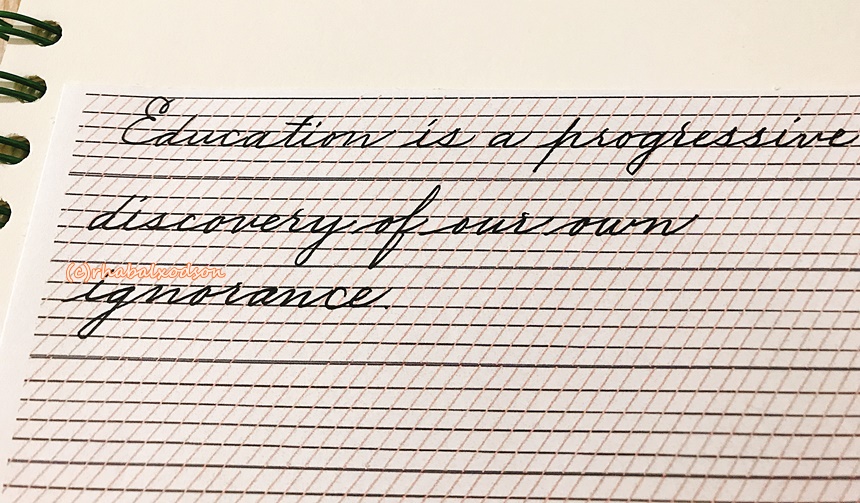 Education is a progressive
discovery of our own
(c)rhabalxodson
ignorance.